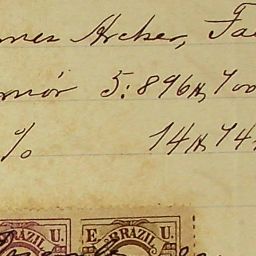 mes Archer, Fa
mór 5:896$700
% 14$74
BRAZIL U. E. BRAZIL U.